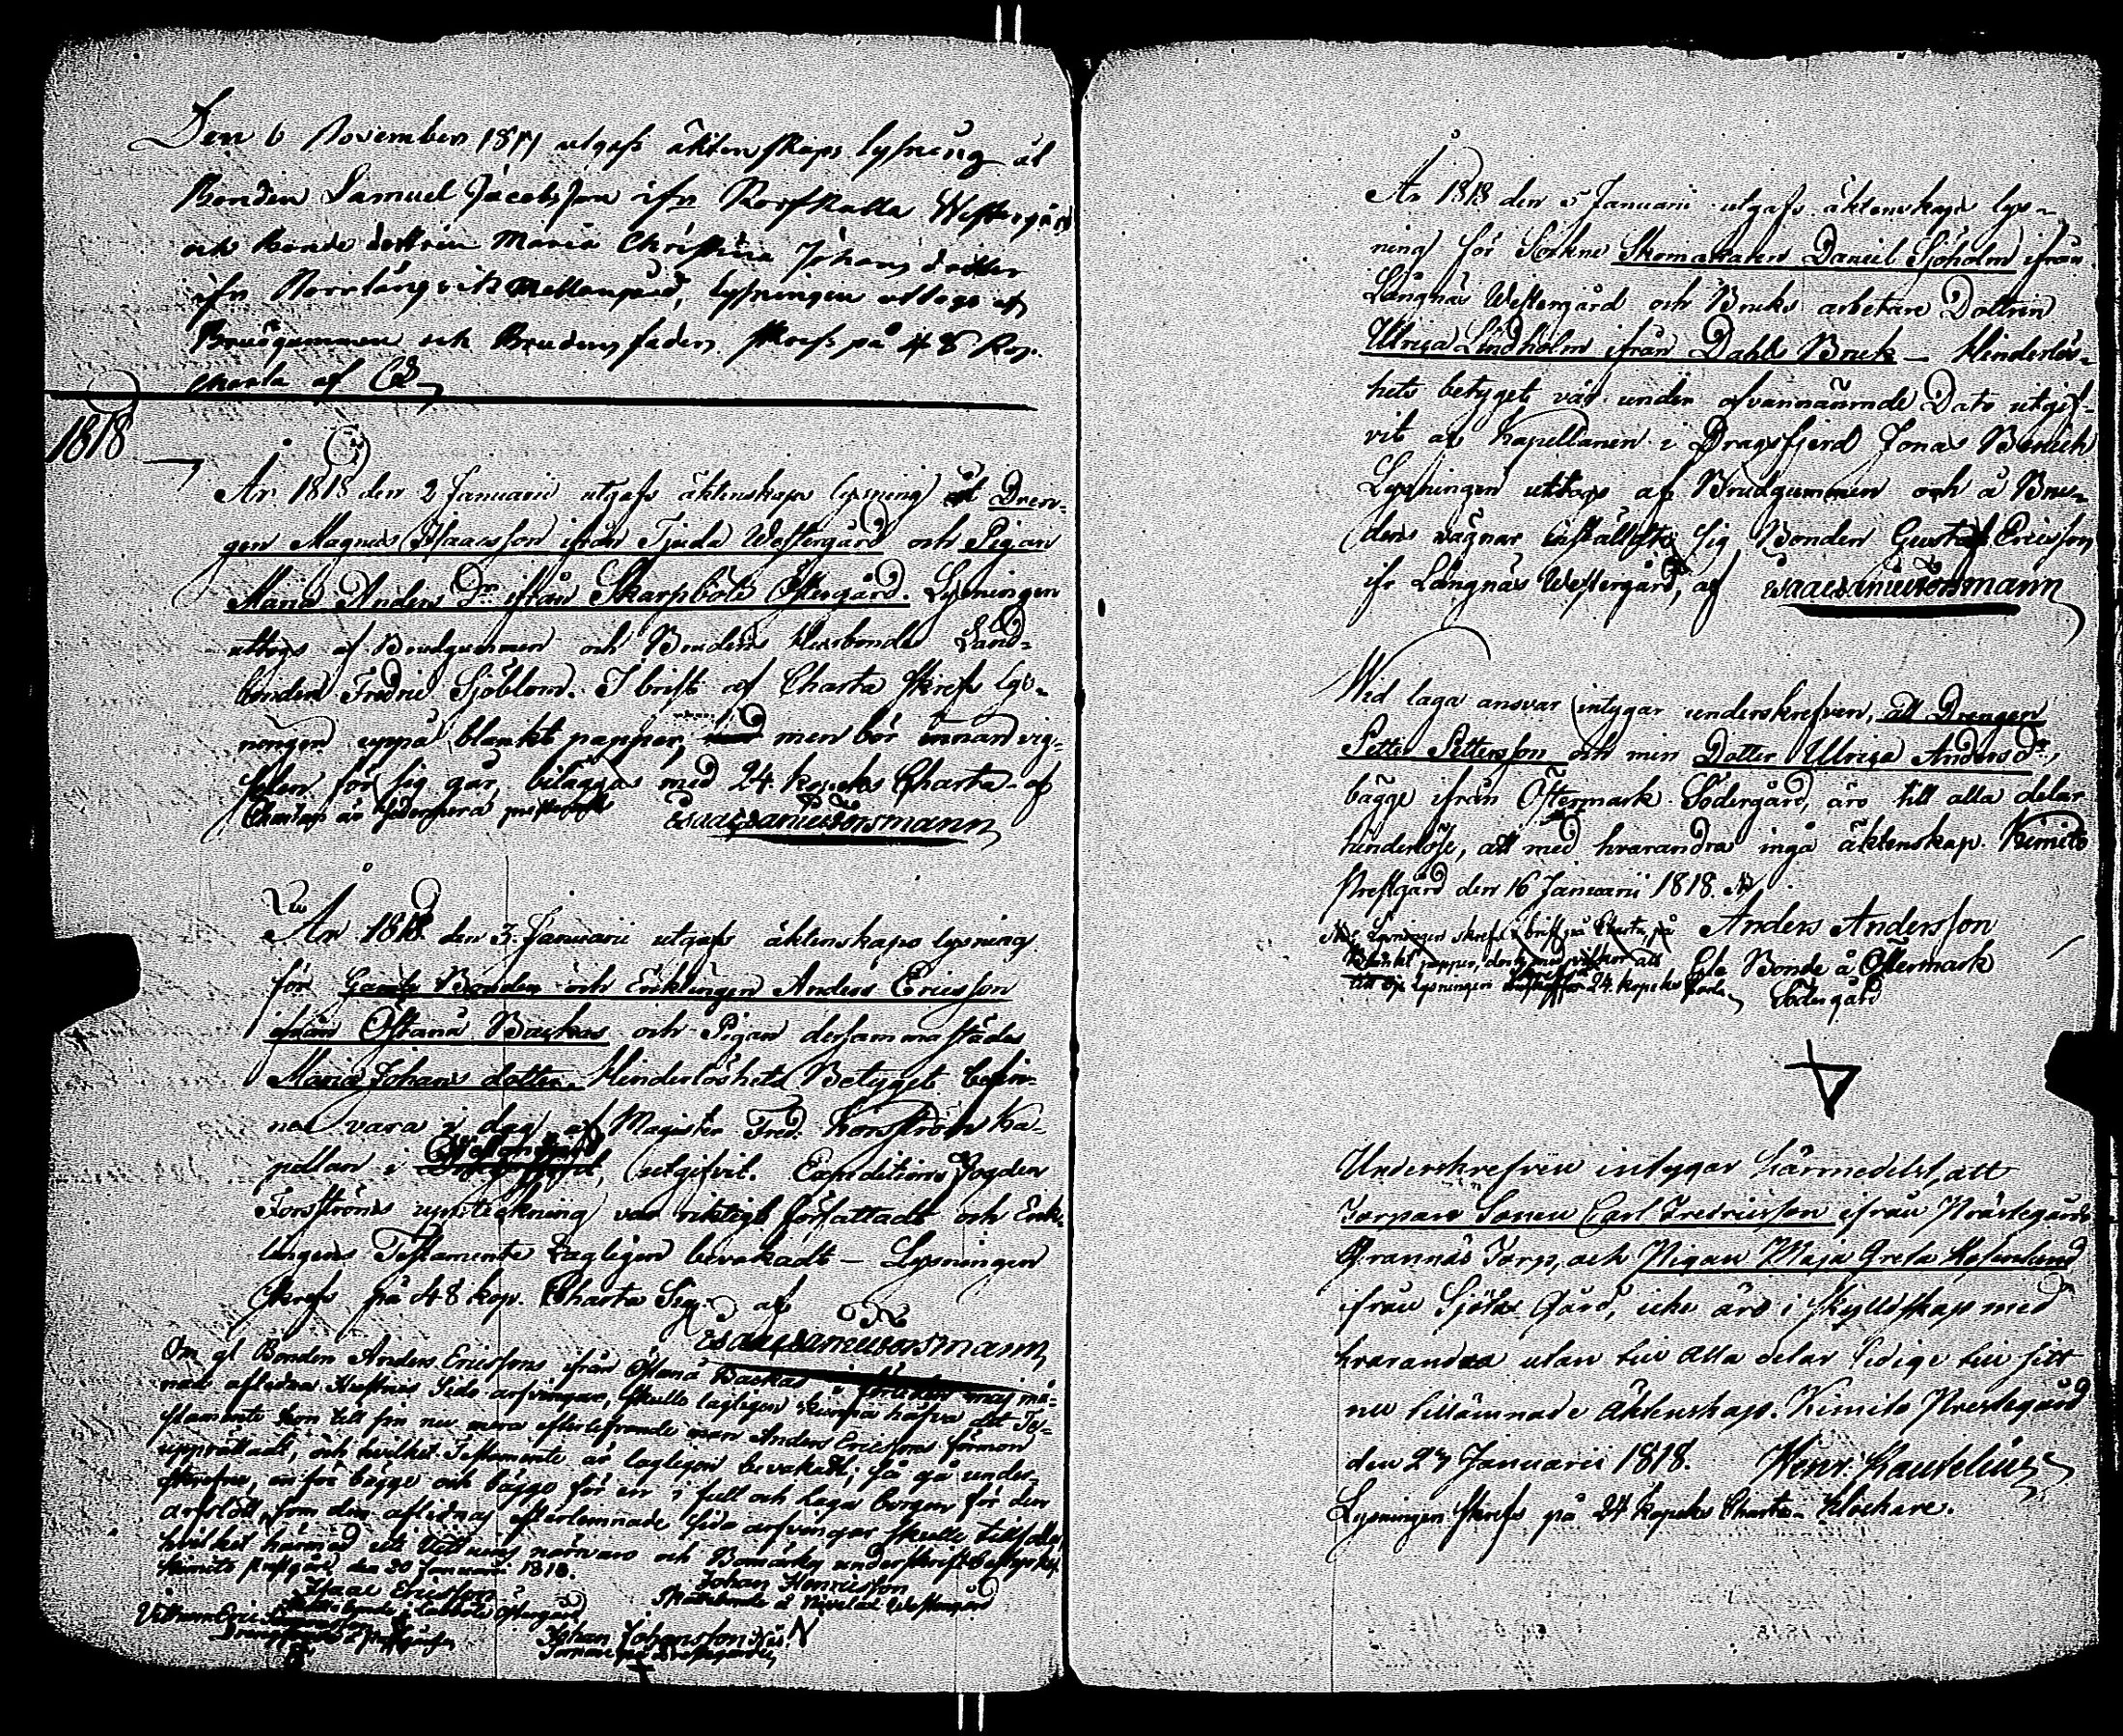 Den 6 November 1817 utgafs äktenskaps lysning åt
Bonden Samuel Jacobsson ifn Rosfkalla Westergård
och Bonde dottren Maria Christina Johans dotter
ifn Norrlångvik Mellangård, lysningen uttogs af
Brudgummen och Brudens fader. Skrefs på 48 Kop.
Charta af
1818
År 1818 den 2 Januarii utgafs äktenskaps lysning åt Dren-
gen Magnus Isaacsson ifrån Tjuda Westergård och Pigan
Maria Anders Dr ifrån Skarpböle Östergård. Lysningen
uttogs af Brudgummen och Brudens Husbonde Land-
bonden Fredric Sjöblom. I brist af Charta skrefs lys-
ningen uppå blankt papper, men bör innan vig-
selen för sig går, biläggas med 24 kopeks Charta. af
Chartan är sedermera
Isaac Daniel Forsmann
År 1818 den 3 Januarii utgafs äktenskaps lysning
för Gamle Bonden och Enklingen Anders Ericsson
ifrån Östanå Backas och Pigan dersammastädes
Maria Johans dotter. Hinderlöshets Betyget befin-
nes vara i dag af Magister Fred. Forsström Ka-
pellan i utgifvit. Expeditions Fogden
Forsströms uppteckning var riktigt författadt och Enk-
lingens Testamente lagligen bevakadt – Lysningen
skrefs på 48 kop. Charta Sig. af
Isaac Daniel Forsmann
Om gl Bonden Anders Ericssons ifrån Östanå Backas
nes aflidna Hustrus Sido arfvingar, skulle lagligen
stamente hon till sin nu mera efterlefvande man Anders Ericssons förmon
upprättadt, och hvilket Testamente är lagligen bevakadt; så gå under-
skrefne, en för bägge och bägge för en i full och laga borgen för den
arfslott, som den aflidnas efterlemnade Sido arfvingar skulle tillfalla
hvilket härmed uti Vittnens närvaro och Bomärkes underskrift bestyrkes.
Kimito Prestgård den 30 Januarii 1818.
Isaac Ericsson
Johan Henricsson
Östergård
Westergård
Johan Johansson
År 1818 den 5 Januarii utgafs äktenskaps lys-
ning för Sockne Skomakaren Daniel Sjöholm ifrån
Långnäs Westergård och Bruks arbetare Dottren
Ulrica Lindholm ifrån Dahls Bruk – Hinderlös-
hets betyget var under ofvannämnde Dato utgif-
vit af Kapellanen i Dragsfjerd Jonas
Lysningen uttogs af Brudgummen och å Bru-
dens vägnar inställdte sig Bonden Gustaf Ericsson
ifr Långnäs Westergård, af Isaac Daniel Forsmann
Wid laga ansvar intygar underskrefven, att Drengen
Petter Pettersson och min Dotter Ulrica Anders dr,
bägge ifrån Östermark Södergård, äro till alla delar
hinderlöse, att med hvarandra ingå äktenskap. Kimito
Prestgård den 16 Januarii 1818.
Lysningen skrefs i brist på Charta, på
Blankt papper,
Lysningen 24 kopeks
Anders Andersson
Bonde å Östermark
Södergård
Underskrefven intygar härmedelst, att
Torpare Sonen Carl Fredricsson ifrån Prästegårds
Grannäs Torp, och Pigan Maja Greta
ifrån Sjölax Gård, icke äro i skyldskap med
hvarandra utan till alla delar ledige till sitt
nu tillämnade Äktenskap. Kimito Prestegård
den 27 Januarii 1818. Henr.
Lysningen skrefs på 24 kopeks Charta. Klockare.